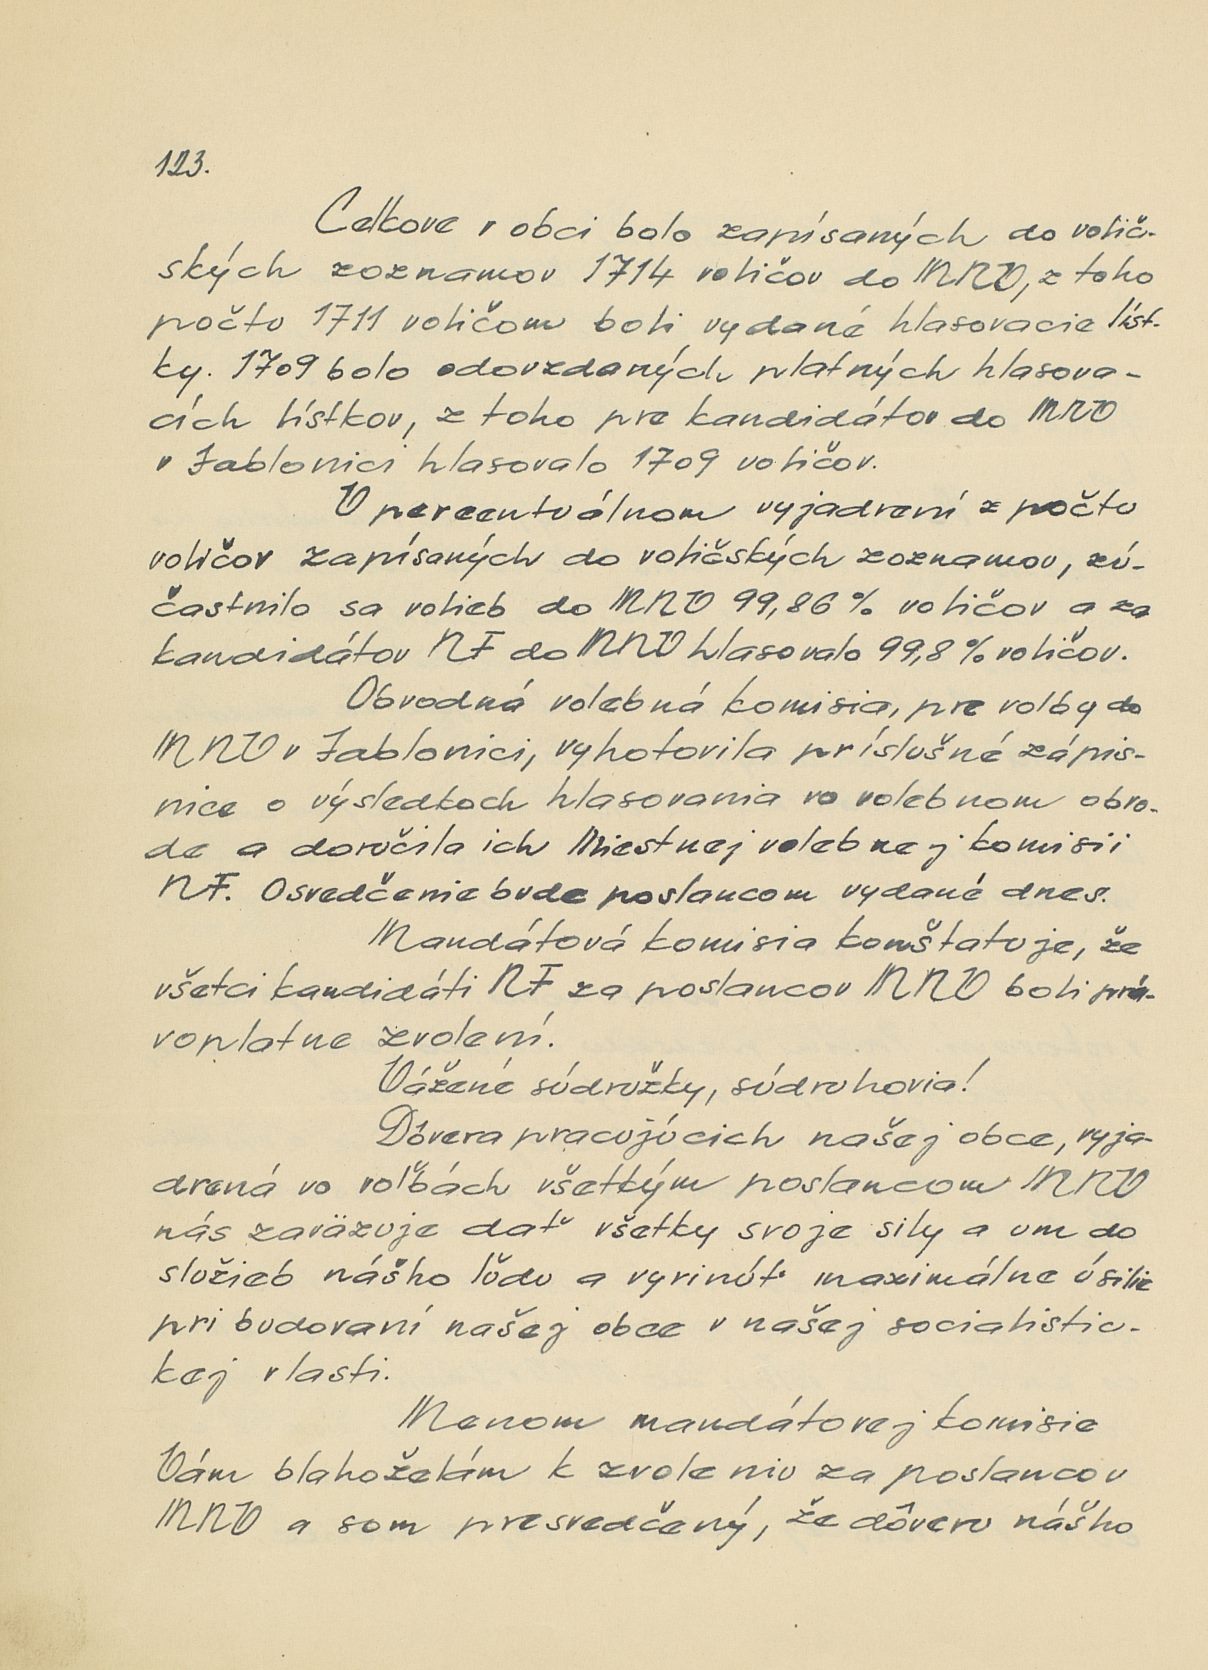 123.
Celkove v obci bolo zapísaných do volič-
ských zoznamov 1714 voličov do MNV, z toho
počtu 1711 voličom boli vydané hlasovacie líst-
ky. 1709 bolo odovzdaných platných hlasova-
cích lístkov, z toho pre kandidátov do MNV
v Jablonici hlasovalo 1709 voličov.
V percentuálnom vyjadrení z počtu
voličov zapísaných do voličských zoznamov, zú-
častnilo sa volieb do MNV 99,86 % voličov a za
kandidátov NF do MNV hlasovalo 99,8 % voličov.
Obvodná volebná komisia, pre volby do
MNV v Jablonici, vyhotovila príslušné zápis-
nice o výsledkoch hlasovania vo volebnom obvo-
de a doručila ich Miestnej volebnej komisii
NF. Osvedčenie bude poslancom vydané dnes.
Mandátová komisia komštatuje, že
všetci kandidáti NF za poslancov MNV boli prá-
voplatne zvolení.
Vážené súdružky, súdruhovia!
Dôvera pracujúcich našej obce, vyja-
drená vo voľbách všetkým poslancom MNV
nás zaväzuje dať všetky svoje sily a um do
služieb nášho ľudu a vyvinúť maximálne úsilie
pri budovaní našej obce v našej socialistic-
kej vlasti.
Menom mandátovej komisie
Vám blahoželám k zvoleniu za poslancov
MNV a som presvedčený, že dôveru nášho